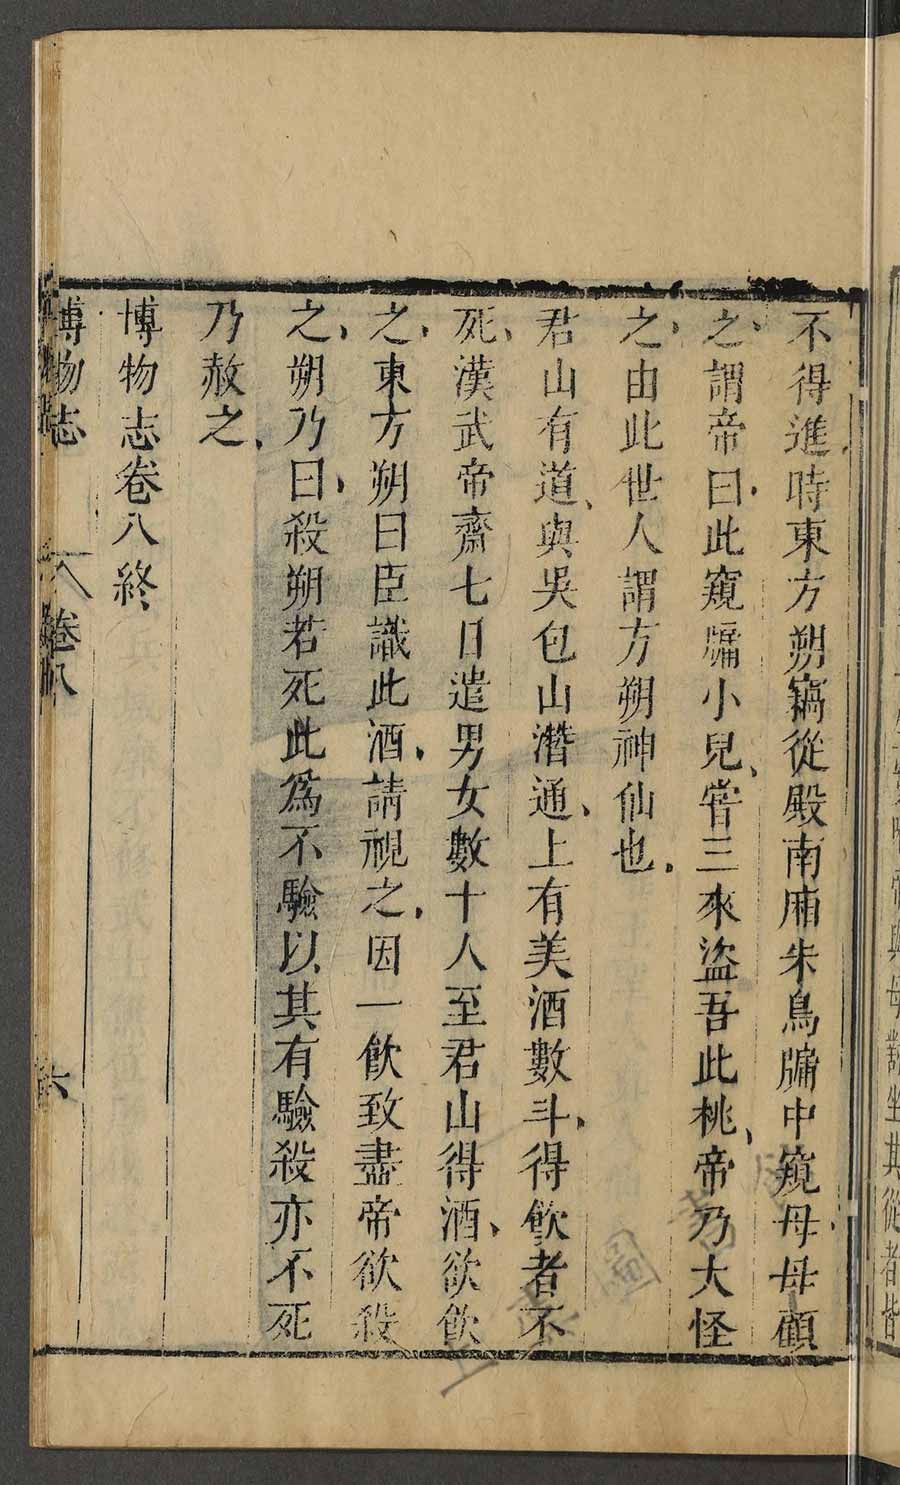 帝與母對坐其從者皆
不得進時東方朔竊從殿南廂朱鳥牖中窺母母顧
之謂帝曰此窺牖小兒嘗三來盜吾此桃帝乃大怪
之由此世人謂方朔神仙也
君山有道與吳包山潛通上有美酒數斗得飲者不
死漢武帝齋七日遣男女數十人至君山得酒欲飲
之東方朔曰臣識此酒請視之因一飲致盡帝欲殺
之朔乃曰殺朔若死此爲不驗以其有驗殺亦不死
乃赦之
博物志卷八終
博物志 卷八 六